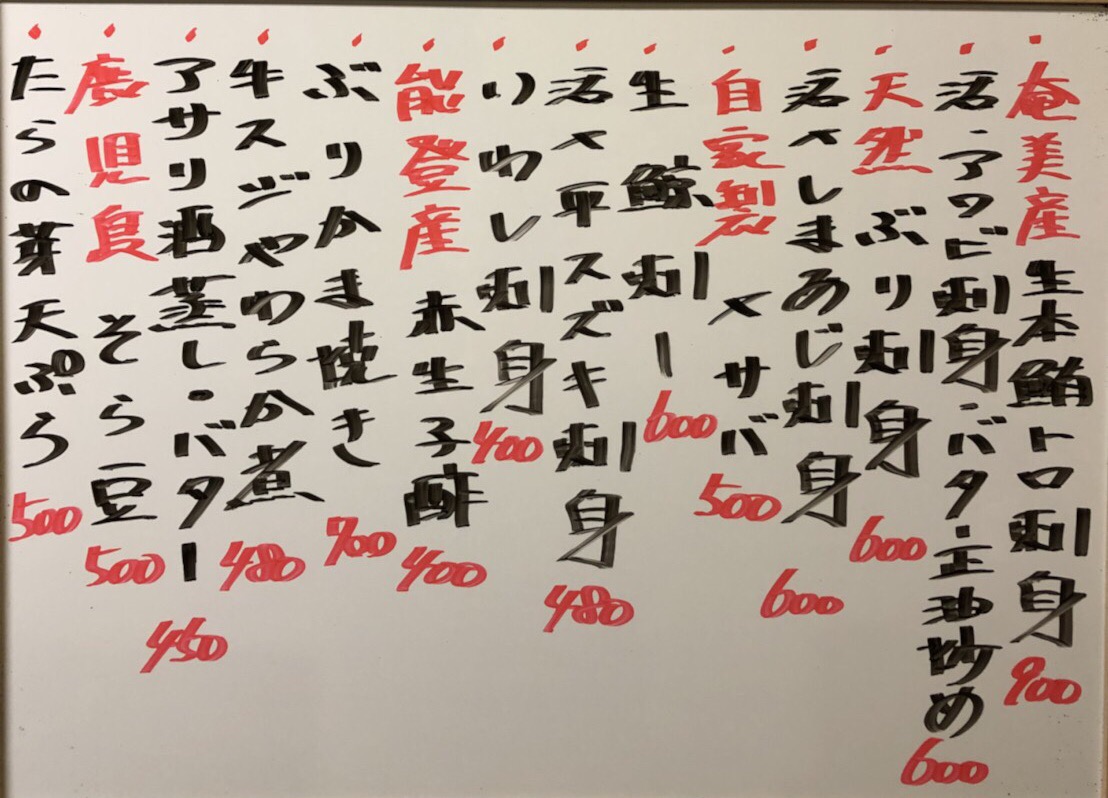 奄美産生本鮪トロ刺身 900
活・アワビ刺身・バタ・正油炒め 600
天然ぶり刺身 600
活〆しまあじ刺身 600
自家製〆サバ 500
生鯨刺し 600
活〆平スズキ刺身 480
いわし刺身 400
能登産赤生子酢 400
ぶりかま焼き 700
牛スジやわらか煮 480
アサリ酒蒸し・バター 450
鹿児島そら豆 500
たらの芽天ぷら 500